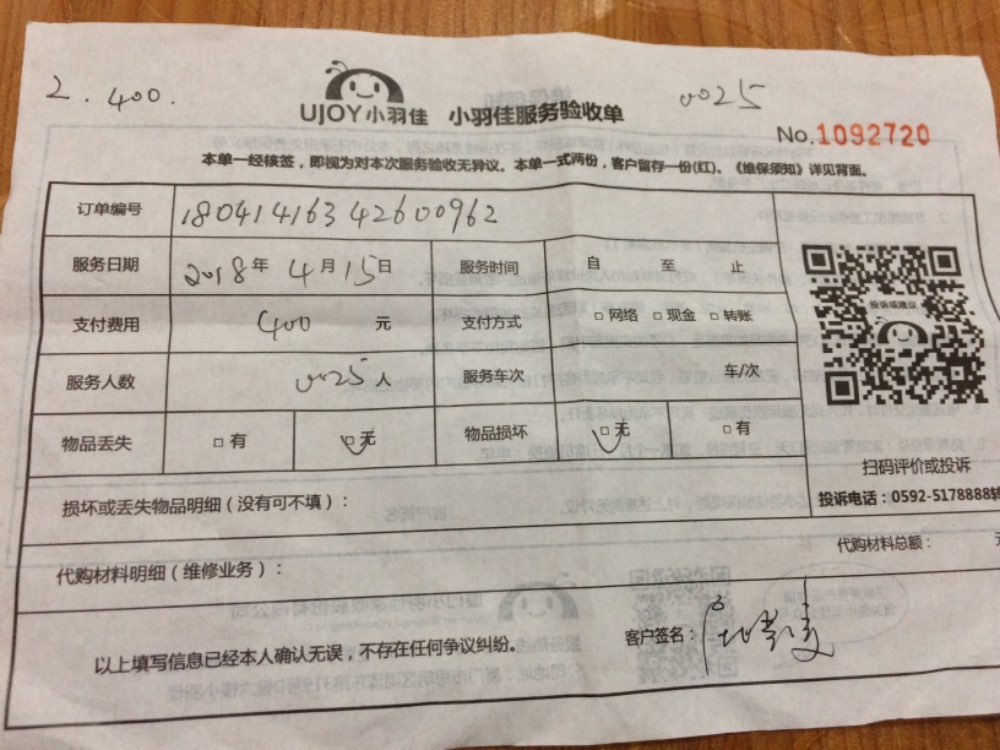 2. 400.
0025
UJOY小羽佳 小羽佳服务验收单
No.1092720
本单一经核签，即视为对本次服务验收无异议。本单一式两份，客户留存一份(红)。《维保须知》详见背面。
订单编号 18041416342600962
服务日期 2018年4月15日 服务时间 自 至 止
支付费用 400 元 支付方式 □网络 □现金 □转账
服务人数 0025人 服务车次 车/次
物品丢失 □有 □无 物品损坏 □无 □有
投诉或建议
扫码评价或投诉
投诉电话：0592-5178888转
损坏或丢失物品明细（没有可不填）：
代购材料明细（维修业务）：
代购材料总额：
以上填写信息已经本人确认无误，不存在任何争议纠纷。
客户签名：